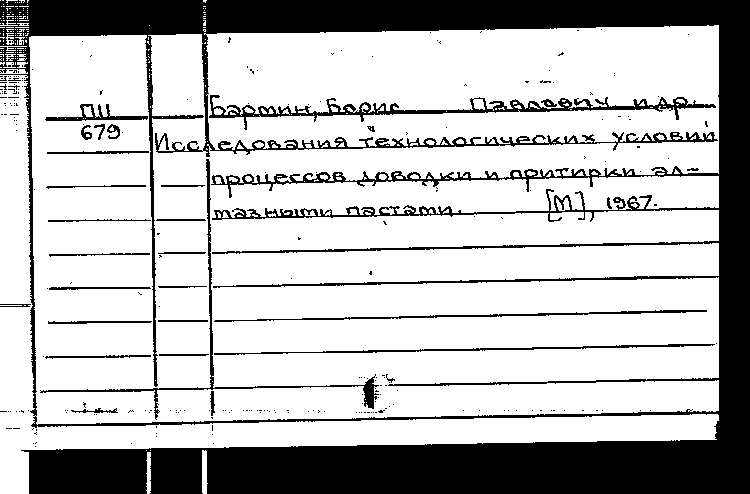 П11 Бармин, Борис Павлович и др.
679 Исследования технологических условий
процессов доводки и притирки ал-
мазными пастами. [М], 1967.